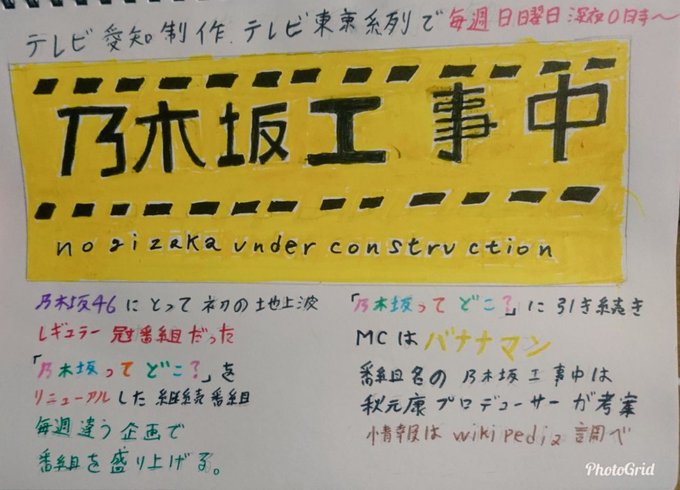 テレビ愛知制作.テレビ東京系列で毎週日曜日深夜0時〜
乃木坂工事中
nogizaka under construction
乃木坂46にとって初の地上波
レギュラー冠番組だった
「乃木坂ってどこ?」を
リニューアルした継続番組
毎週違う企画で
番組を盛り上げる。
「乃木坂ってどこ?」に引き続き
MCはバナナマン
番組名の乃木坂工事中は
秋元康プロデューサーが考案
情報はwikipedia調べ
PhotoGrid